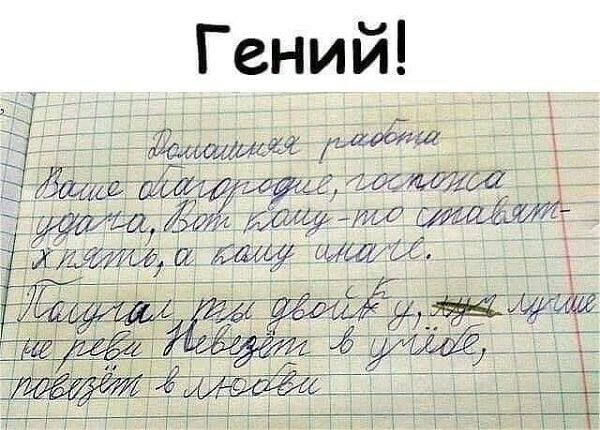 Гений!
Домашняя работа
Ваше благородие, госпожа
удача, Вот кому-то ставят-
х пять, а кому иначе.
Получал ты двойку, луч лучше
не реви Невезёт в учёбе,
повезёт в любови